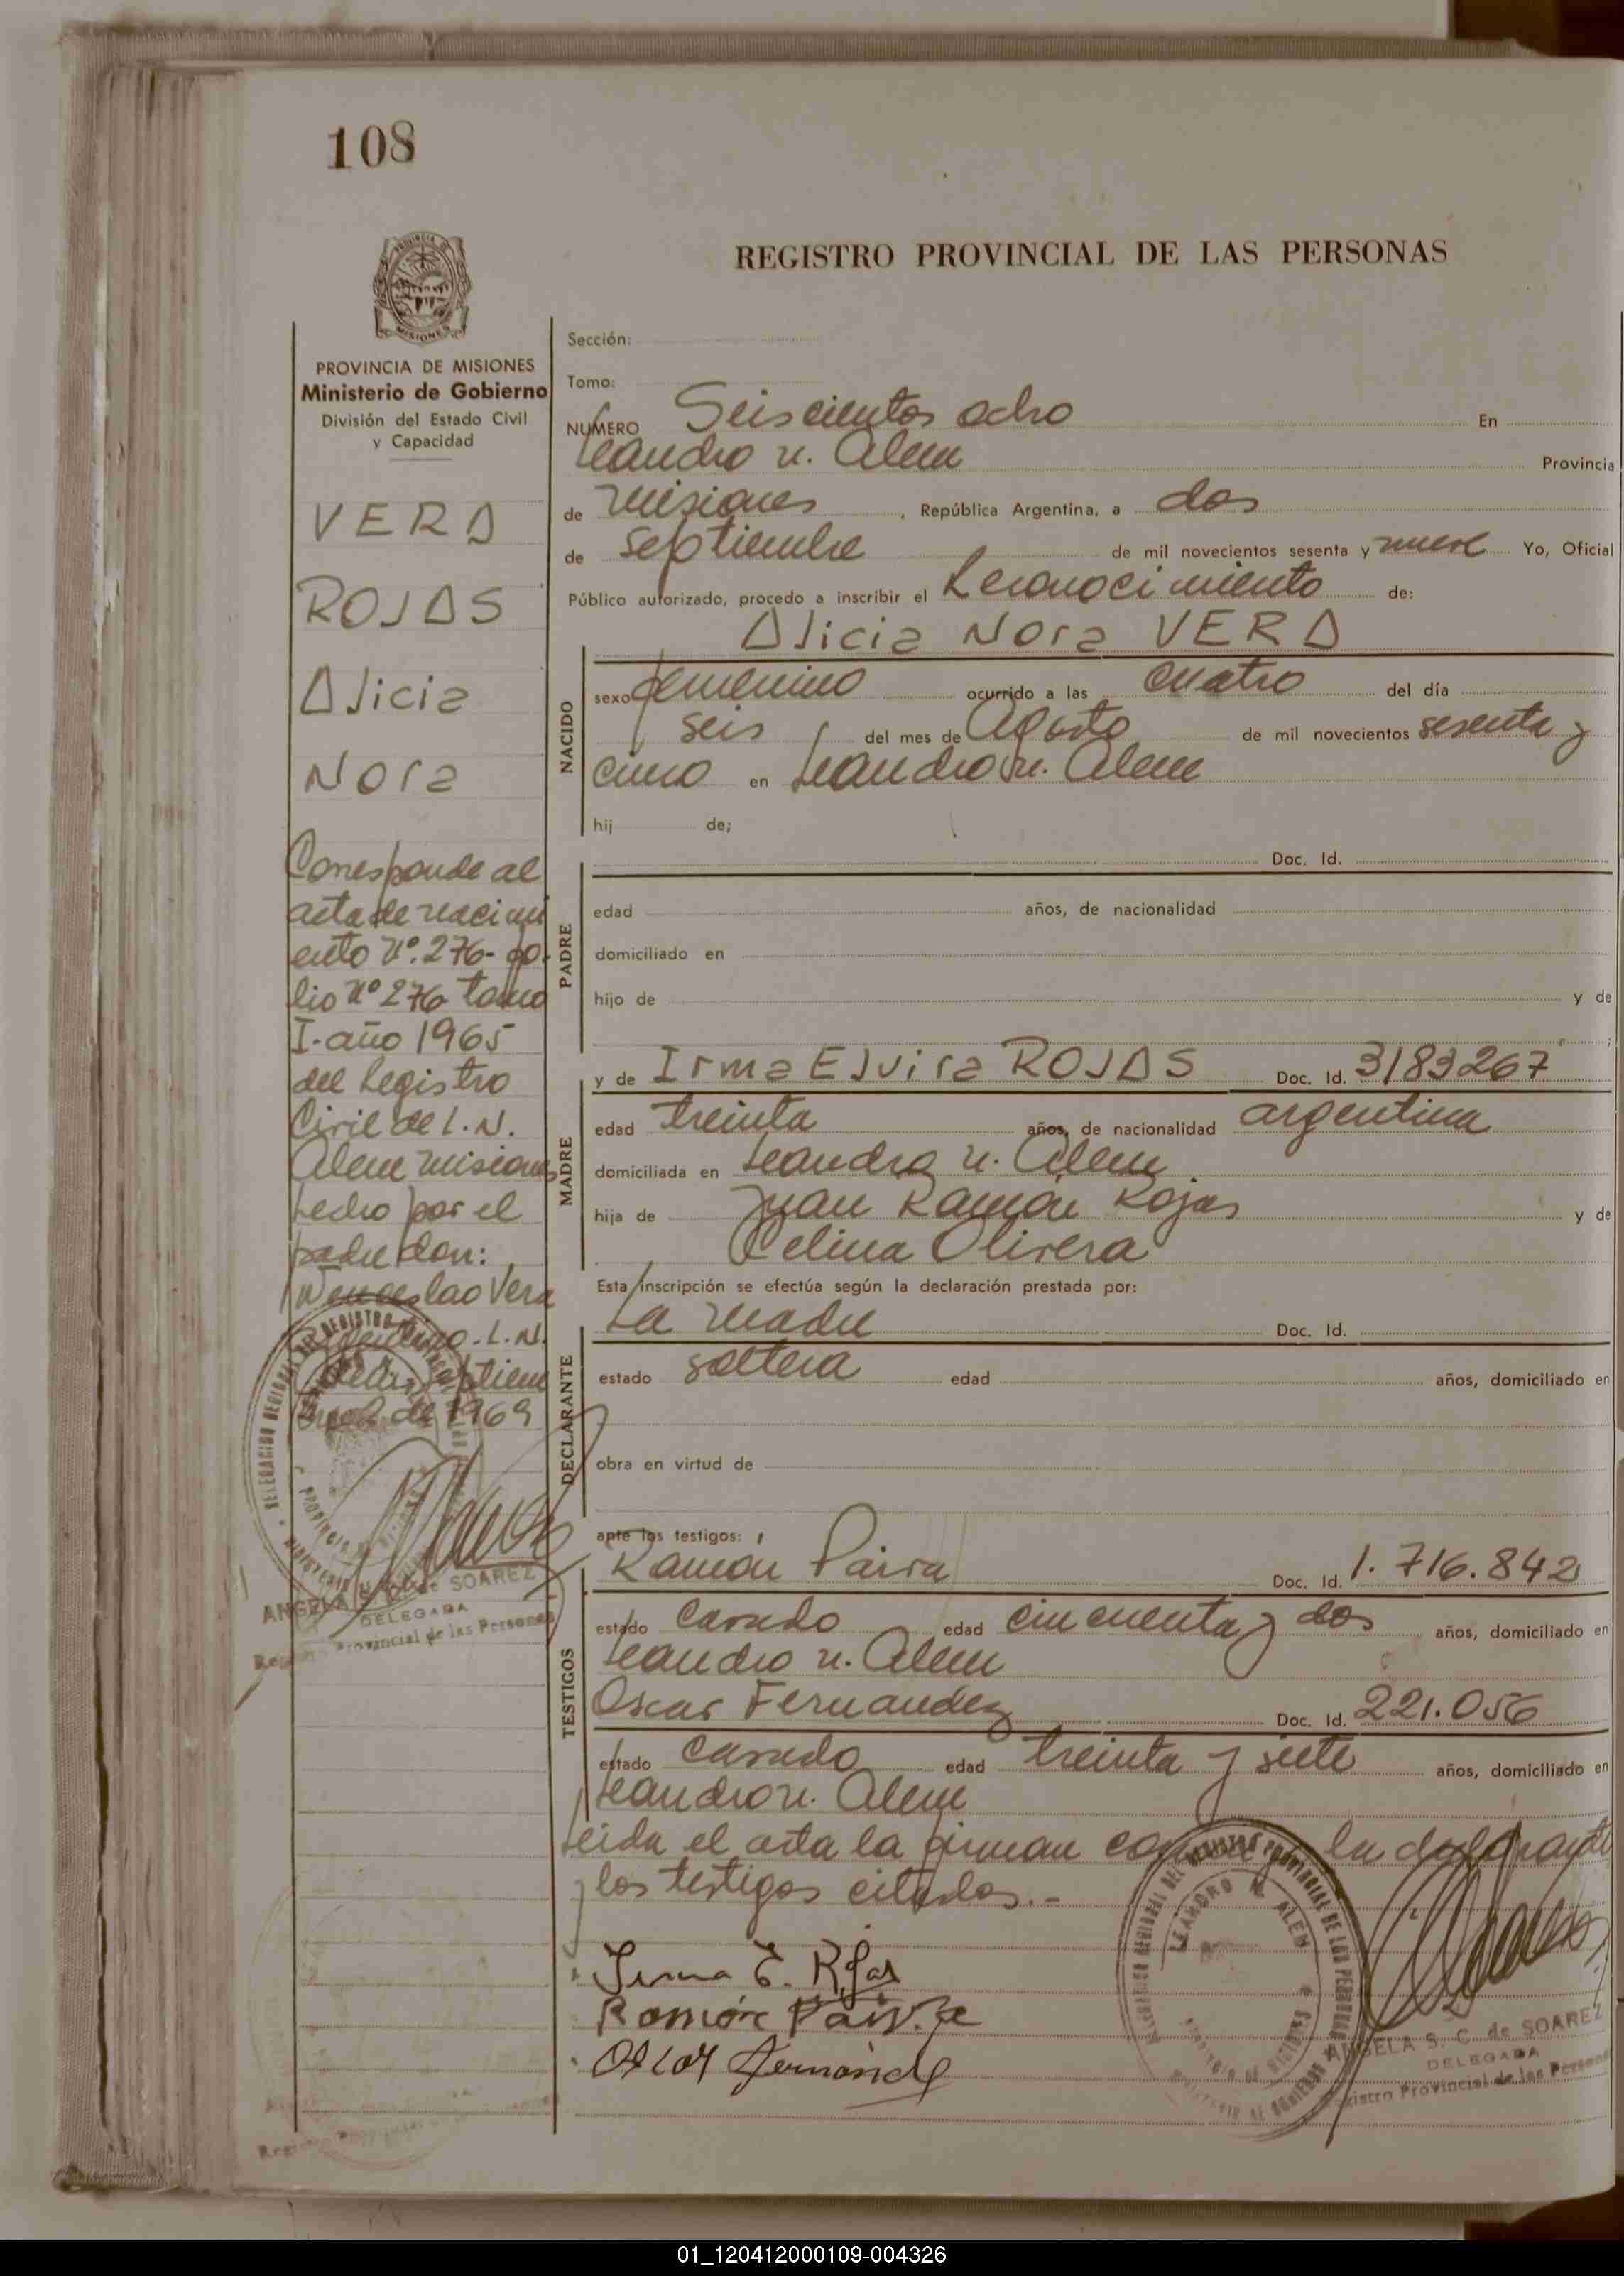 108
REGISTRO PROVINCIAL DE LAS PERSONAS
MISIONES
PROVINCIA DE MISIONES
Ministerio de Gobierno
División del Estado Civil
y Capacidad
VERA
ROJAS
Alicia
Nora
Corresponde al
acta de nacimi
ento Nº. 276- fo-
lio Nº 276 tomo
I. año 1965
del Registro
Civil de L. N.
Alem Misiones
hecho por el
padre don:
Wenceslao Vera
L. N.
Alem, Septiem
de 1969
ANGELA S. C. de SOAREZ
DELEGADA
Registro Provincial de las Personas
Sección:
Tomo:
NUMERO Seiscientos ocho En
Leandro N. Alem Provincia
de Misiones, República Argentina, a dos
de Septiembre de mil novecientos sesenta y nueve Yo, Oficial
Público autorizado, procedo a inscribir el Reconocimiento de:
Alicia Nora VERA
NACIDO
sexo femenino ocurrido a las cuatro del día
seis del mes de Agosto de mil novecientos sesenta y
cinco en Leandro N. Alem
hij de;
PADRE
Doc. Id.
edad años, de nacionalidad
domiciliado en
hijo de y de
MADRE
y de Irma Elvira ROJAS Doc. Id. 3183267
edad treinta años, de nacionalidad argentina
domiciliada en Leandro N. Alem
hija de Juan Ramón Rojas y de
Celina Olivera
Esta inscripción se efectúa según la declaración prestada por:
DECLARANTE
La madre Doc. Id.
estado soltera edad años, domiciliado en
obra en virtud de
ante los testigos:
TESTIGOS
Ramon Paiva Doc. Id. 1.716.842
estado casado edad cincuenta y dos años, domiciliado en
Leandro N. Alem
Oscar Fernandez Doc. Id. 221.056
estado casado edad treinta y siete años, domiciliado en
Leandro N. Alem
Leida el acta la firman la declarante
y los testigos citados.-
Irma E. Rojas
Ramón Paiva
Oscar Fernande
LEANDRO N. ALEM
ANGELA S. C. de SOAREZ
DELEGADA
Registro Provincial de las Personas
01_120412000109-004326